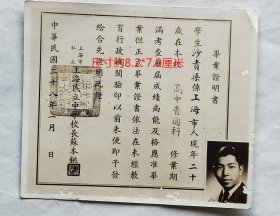 畢業證明書
學生沙責操係上海市人現年二十
歲在本校高中普通科修業期
滿考查歷屆成績高能及格應准畢
業但正式畢業證書依法在未經教
育行政機關驗印以前未便即予發
給合先證明此證
上海市私立
上海民立中學校長蘇本銚
中華民國三十八年一月　日
尺寸约8.2*7.8厘米